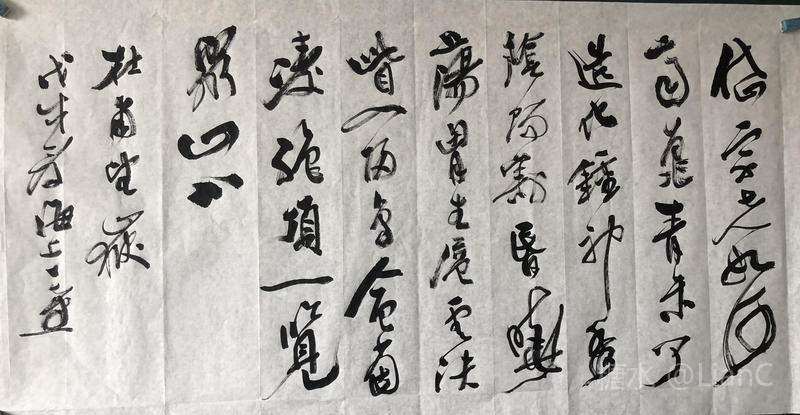 岱宗夫如何
齊魯青未了
造化鍾神秀
陰陽割昏曉
蕩胸生層雲決
眥入歸鳥會當
凌絕頂一覽
眾山小
杜甫望嶽
戊戌 海上
@LianC